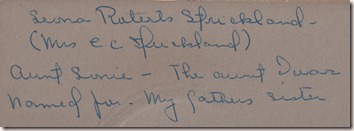 Leona Roberts Strickland -
(Mrs E C Strickland)
Aunt Lonie - The aunt I was
named for - My fathers sister